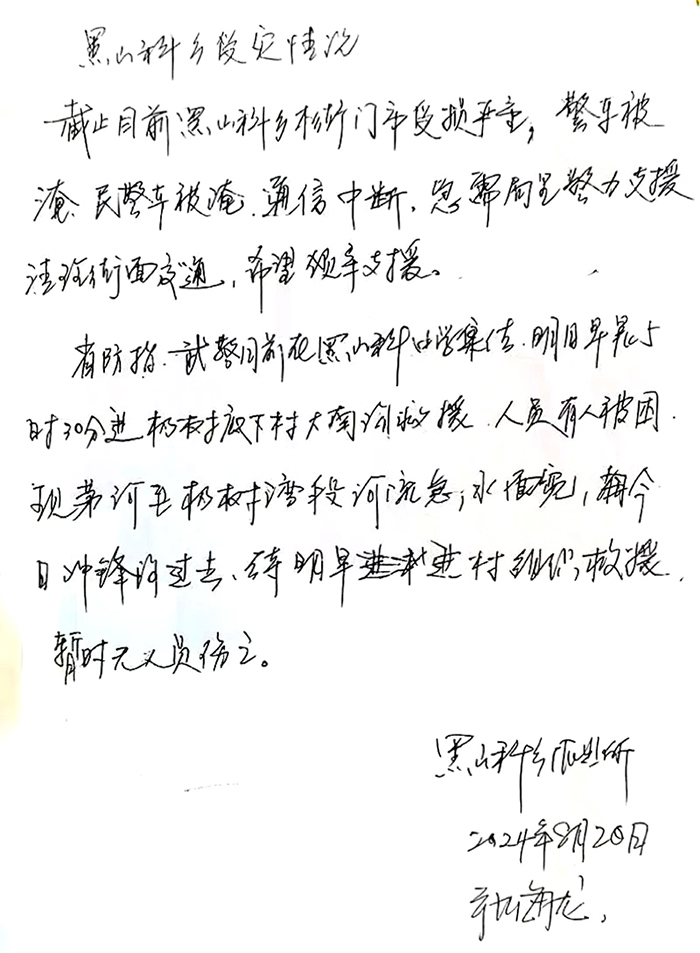 黑山科乡受灾情况
截止目前黑山科乡街门市受损严重，警车被
淹、民警车被淹、通信中断，急需局里警力支援
清理街面交通，希望领导支援。
省防指、武警目前在黑山科中学集结、明日早晨5
时30分进杨树底下村大南沟救援、人员有人被困、
现河至杨树湾段河流急，水面宽，今
日冲锋过去、待明早进村进村组织救援、
暂时无人员伤亡。
黑山科乡派出所
2024年8月20日
海龙